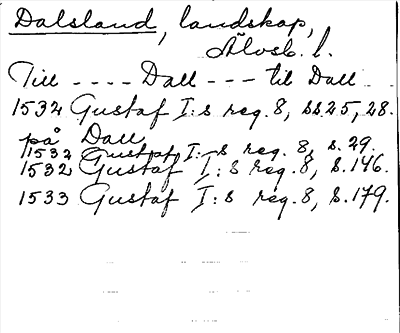 Dalsland, landskap,
Älvsb. l.
Till ---- Dall --- til Dall
1532 Gustaf I:s reg. 8, ss 25, 28.
på Dall
1532 Gustaf I:s reg. 8, s. 29.
1532 Gustaf I:s reg. 8, s. 146.
1533 Gustaf I:s reg. 8, s. 179.